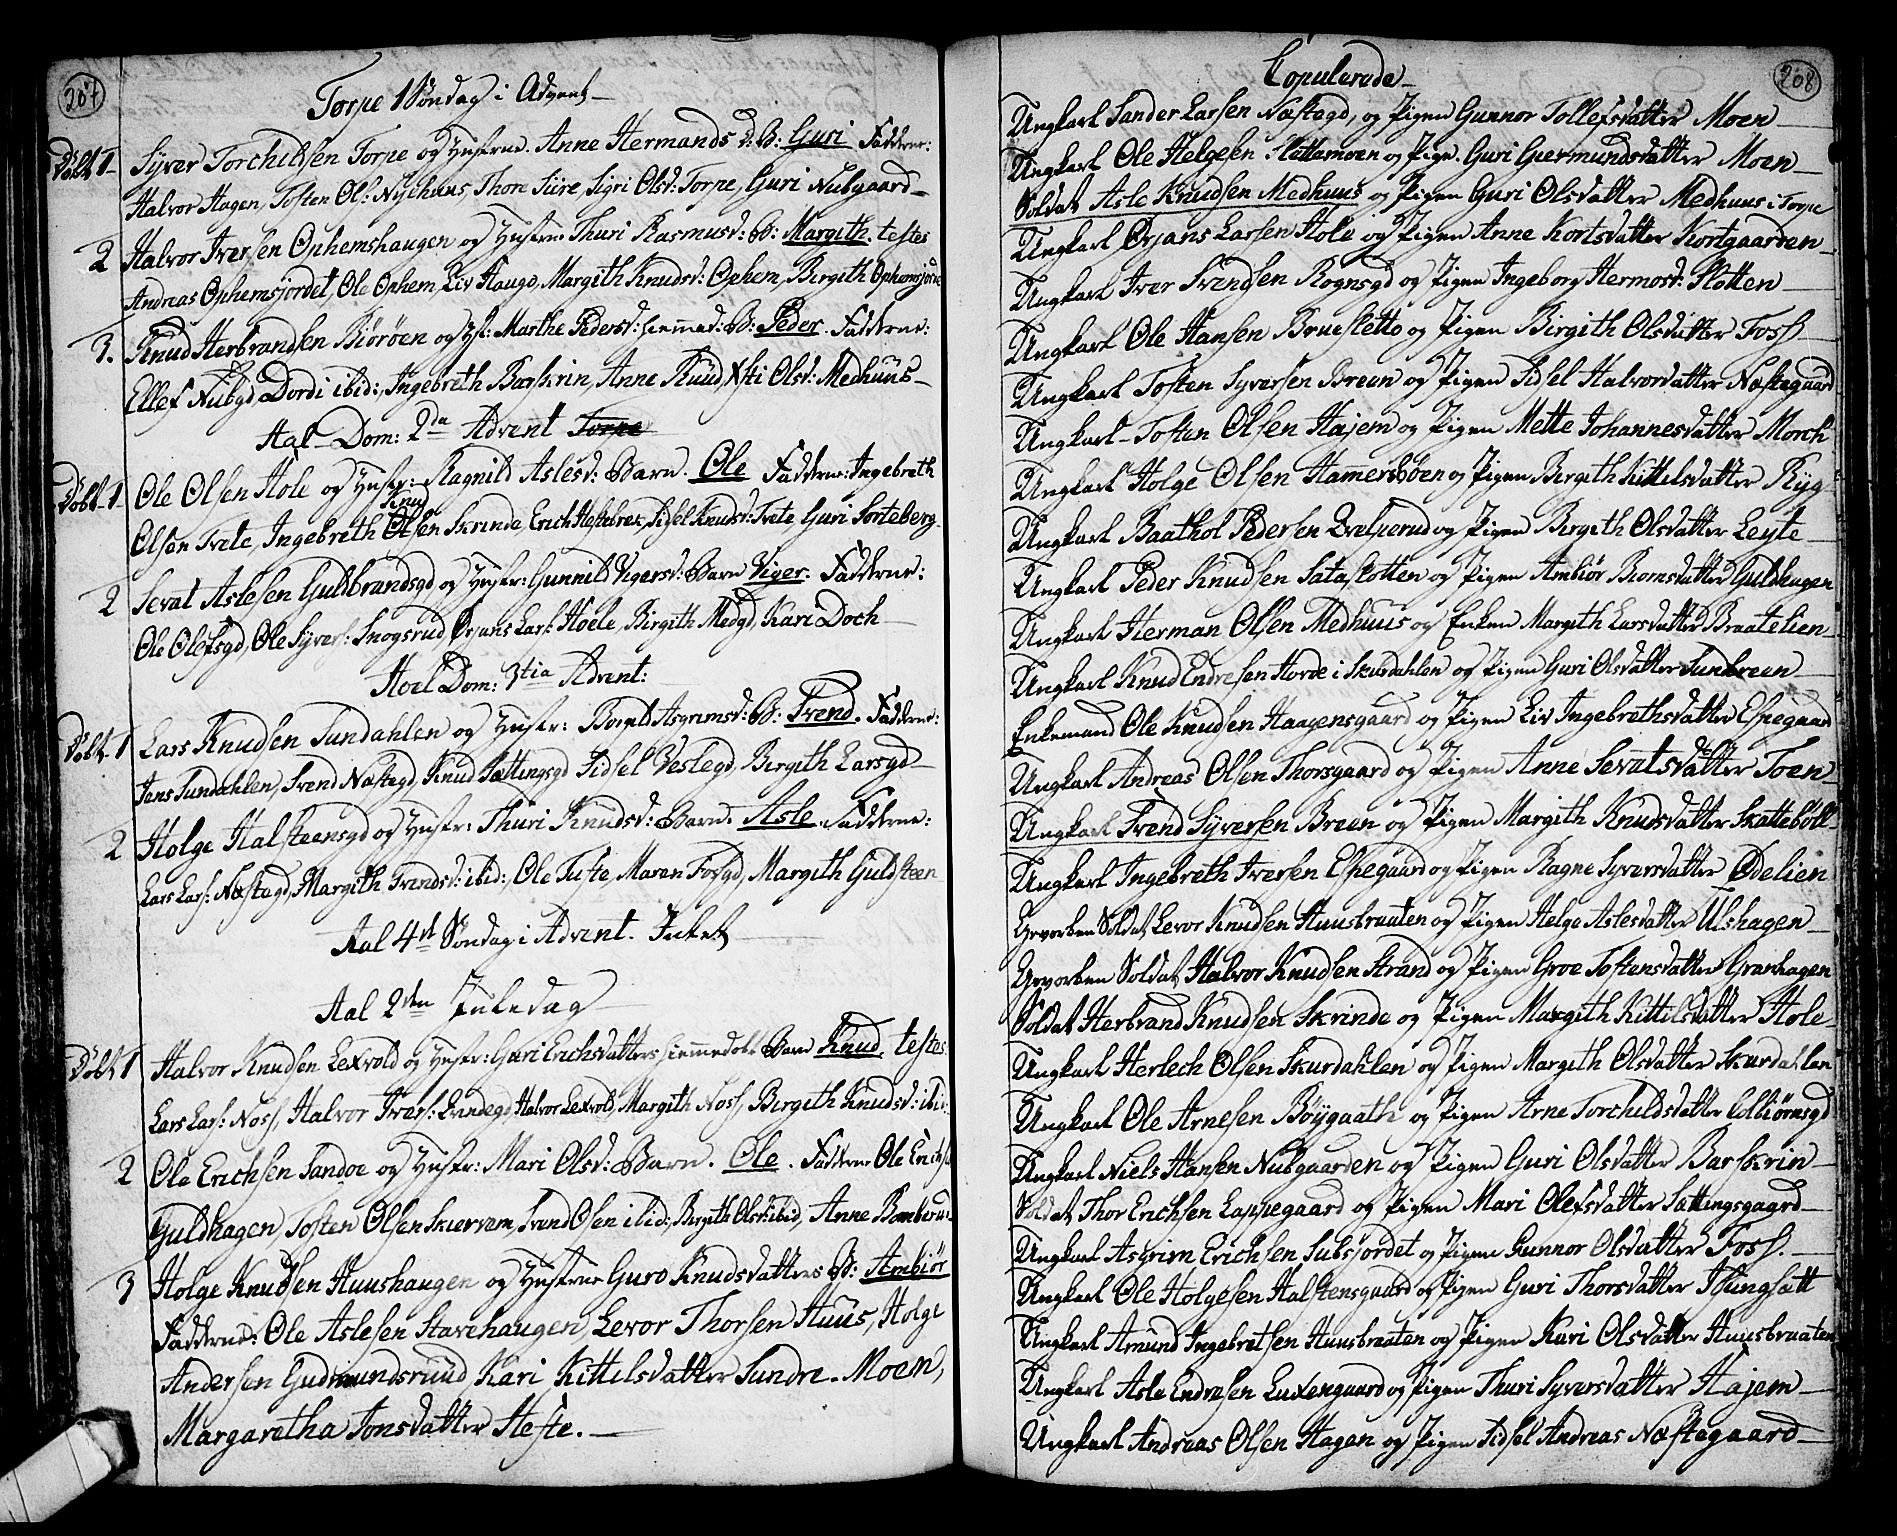 207
Torpe 1 Söndag i Advent
Döbt 1 Syver Torchildsen Torpe og Hustrue Anne Hermands d: B: Guri Fadderne:
Halvor Hagen, Tosten Ols: Nyehuus, Thore Siire, Sigri Olsd: Torpe, Guri Nubgaard
2 Halvor Iversen Ophemshaugen og Hustrue Thuri Rasmusd: B: Margith. testes
Andreas Ophemsjordet, Ole Ophem, Liv Hauge, Margith Knudsd: Ophem, Birgith Ophemsjorde
3. Knud Herbrandsen Biöröen og H: Marthe Pedersd: hiemmed: B: Peder. Fadderne:
Ellef Nubgd, Dordi ibid:, Ingebreth Barskrin, Anne Ruud, Kisti Olsd: Medhuus
Aal Dom: 2da Advent Torpe
Döbt 1 Ole Olsen Hole og Hustr: Ragnild Aslesd: Barn. Ole Fadderne: Ingebreth
Knud
Olsen Trete, Ingebreth Olsen Skrinde, Erich Hestebrek, Sidsel Knudsd: Trete, Guri Sorteberg
2 Sevat Aslesen Guldbrandsgd og Hustr: Gunnild Vigersd: Barn Viger. Fadderne:
Ole Olefsgd, Ole Syvers: Snogsrud, Örjans Lars: Hoele, Birgith Medgd, Kari Doch
Hoel Dom: 3tia Advent:
Döbt 1 Lars Knudsen Sundahlen og Hustr: Borgild Asgrimsd: B: Trend. Fadderne:
Jens Sundahlen, Svend Næstegd, Knud Sættingsgd Sidsel Veslegd, Birgith Larsgd
2 Holge Halsteensgd og Hustr: Thuri Knudsd: Barn. Asle. Fadderne:
Lars Lars: Næstegd, Margith Trendsd: ibid:, Ole Tufte, Maren Fosgd, Margith Guldsteen
Aal 4d Söndag i Advent. Intet
Aal 2den Juledag
Döbt 1 Halvor Knudsen Lexvold og Hustr: Guri Erichsdatters hiemmedöbt Barn Knud. testes
Lars Lars: Noss, Halvor Ivers: Landegd, Halvor Lexvold, Margith Noss, Birgith Knudsd: ibid:
2 Ole Erichsen Sandoe og Hustr: Mari Olsd: Barn. Ole. Fadderne Ole Erichs:
Guldhagen, Tosten Olsen Skiervem, Svend Olsen ibid:, Birgith Olsd: ibid, Anne
3 Holge Knudsen Huushaugen og Hustrue Guro Knudsdatters B: Ambiör
Fadderne: Ole Aslesen Starehaugen, Levor Thorsen Huus, Holge
Andersen Gudmundsruud Kari Kittilsdatter Sundre. Moen,
Margaretha Jonsdatter Hefte.
208
Copulerede
Ungkarl Sander Larsen Næstegd, og Pigen Gunnor Tollefsdatter Moen
Ungkarl Ole Helgesen Slettemoen og Pige Guri Giermundsdatter Moen
Soldat Asle Knudsen Medhuus og Pigen Guri Olsdatter Medhuus i Torpe
Ungkarl Örjans Larsen Hole og Pigen Anne Kortsdatter Kortgaarden
Ungkarl Iver Svendsen Rognsgd og Pigen Ingeborg Hermosd: Slotten
Ungkarl Ole Hansen Brueslette og Pigen Birgith Olsdatter Foss
Ungkarl Tosten Syversen Breen og Pigen Sidsel Halvorsdatter Næstegaard
Ungkarl Tosten Olsen Hajem og Pigen Mette Johannesdatter Morch
Ungkarl Holge Olsen Hamersböen og Pigen Bergith Kittelsdatter Ryg
Ungkarl Baathol Pedersen Qvelprud og Pigen Birgith Olsdatter Leyte
Ungkarl Peder Knudsen Sataslotten og Pigen Ambiör Biornsdatter Guldhagen
Ungkarl Herman Olsen Medhuus og Enken Margith Larsdatter Braatelien
Ungkarl Knud Endresen Horde i Skurdahlen og Pigen Guri Olsdatter Sunbreen
Enkemand Ole Knudsen Haagensgaard og Pigen Liv Ingebrethsdatter Espegaard
Ungkarl Andreas Olsen Thorsgaard og Pigen Anne Sevatsdatter Toen
Ungkarl Trend Syversen Breen og Pigen Margith Knudsdatter Skatteböll
Ungkarl Ingebreth Iversen Espegaard og Pigen Ragne Syversdatter Ödelien
Gevorben Soldat Levor Knudsen Huusbraaten og Pigen Helge Aslesdatter Ulshagen
Gevorben Soldat Halvor Knudsen Strand og Pigen Groe Tostensdatter Granhagen
Soldat Herbrand Knudsen Skrinde og Pigen Margith Kittilsdatter Hole
Ungkarl Herlech Olsen Skurdahlen og Pigen Margith Olsdatter Skurdahlen
Ungkarl Ole Arnesen Böygaath og Pigen Arne Torchildsdatter Colbiörnsgd
Ungkarl Niels Hansen Nubgaarden og Pigen Guri Olsdatter Barskrin
Soldat Thor Erichsen Lappegaard og Pigen Mari Olefsdatter Sættingsgaard
Ungkarl Asgrim Erichsen Subsjordet og Pigen Gunnor Olsdatter Foss.
Ungkarl Ole Holgesen Halstensgaard og Pigen Guri Thorsdatter Thingsætt
Ungkarl Amund Ingebretsen Huusbraaten og Pigen Kari Olsdatter Huusbraaten
Ungkarl Asle Endresen Luxengaard og Pigen Thuri Syversdatter Hajem
Ungkarl Andreas Olsen Hagen og Pigen Sidsel Andreas Næstegaard